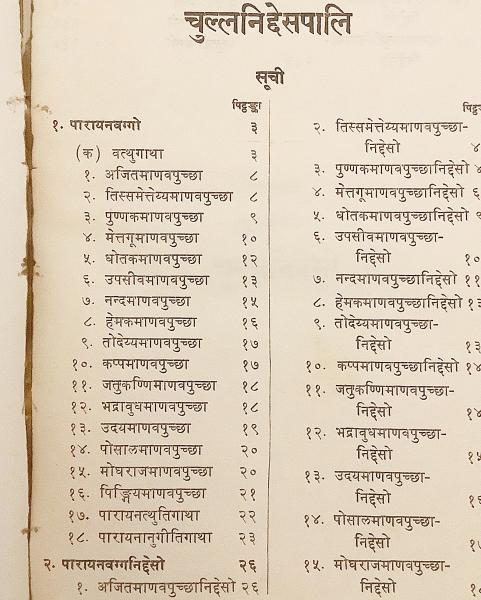 चुल्लनिद्देसपालि
सूची
पिट्ठङ्का
१. पारायनवग्गो ३
(क) वत्थुगाथा ३
१. अजितमाणवपुच्छा ८
२. तिस्समेत्तेय्यमाणवपुच्छा ८
३. पुण्णकमाणवपुच्छा ९
४. मेत्तगूमाणवपुच्छा १०
५. धोतकमाणवपुच्छा १२
६. उपसीवमाणवपुच्छा १३
७. नन्दमाणवपुच्छा १५
८. हेमकमाणवपुच्छा १६
९. तोदेय्यमाणवपुच्छा १७
१०. कप्पमाणवपुच्छा १७
११. जतुकण्णिमाणवपुच्छा १८
१२. भद्रावुधमाणवपुच्छा १८
१३. उदयमाणवपुच्छा १९
१४. पोसालमाणवपुच्छा २०
१५. मोघराजमाणवपुच्छा २०
१६. पिङ्गियमाणवपुच्छा २१
१७. पारायनत्थुतिगाथा २२
१८. पारायनानुगीतिगाथा २३
२. पारायनवग्गनिद्देसो २६
१. अजितमाणवपुच्छानिद्देसो २६
२. तिस्समेत्तेय्यमाणवपुच्छा-
निद्देसो
३. पुण्णकमाणवपुच्छानिद्देसो
४. मेत्तगूमाणवपुच्छानिद्देसो
५. धोतकमाणवपुच्छानिद्देसो
६. उपसीवमाणवपुच्छा-
निद्देसो
७. नन्दमाणवपुच्छानिद्देसो
८. हेमकमाणवपुच्छानिद्देसो
९. तोदेय्यमाणवपुच्छा-
निद्देसो
१०. कप्पमाणवपुच्छानिद्देसो
११. जतुकण्णिमाणवपुच्छा-
निद्देसो
१२. भद्रावुधमाणवपुच्छा-
निद्देसो
१३. उदयमाणवपुच्छा-
निद्देसो
१४. पोसालमाणवपुच्छा-
निद्देसो
१५. मोघराजमाणवपुच्छा-
निद्देसो